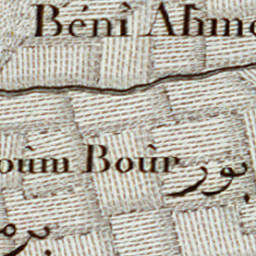 Bénî Ahm
oûm Boûr
بور